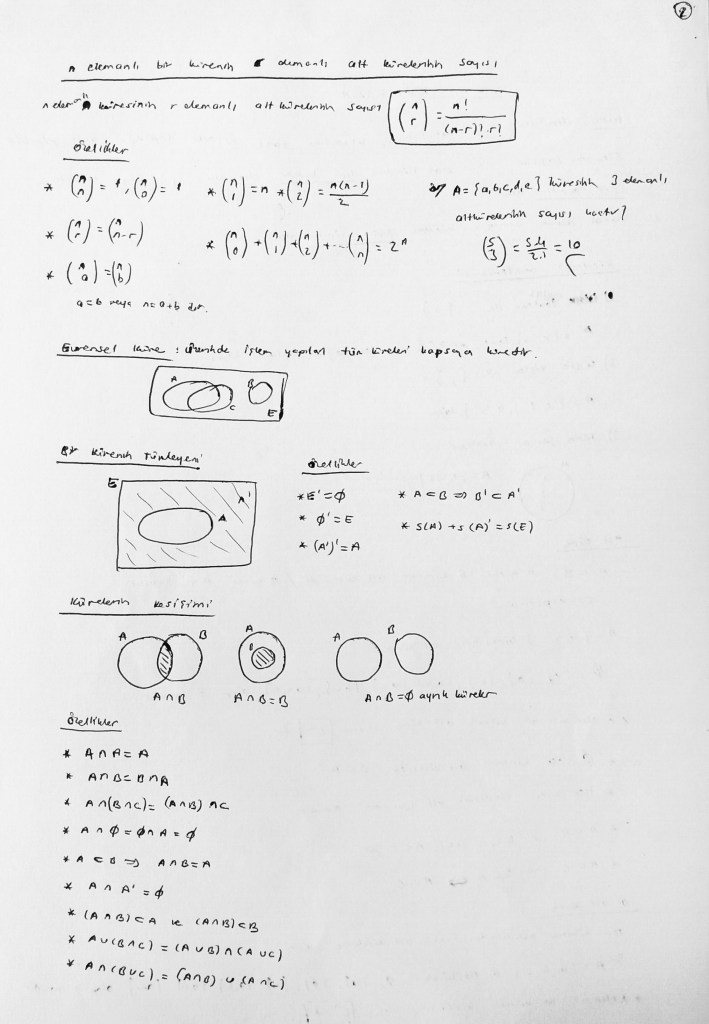 2
n elemanlı bir kümenin r elemanlı alt kümelerinin sayısı
n elemanlı kümesinin r elemanlı alt kümelerinin sayısı (n r) = n! / (n-r)! . r!
özellikler
* (n n) = 1 , (n 0) = 1 * (n 1) = n * (n 2) = n(n-1) / 2
* (n r) = (n n-r) * (n 0) + (n 1) + (n 2) + ... (n n) = 2^n
* (n a) = (n b)
a = b veya n = a + b dir.
ör/ A = {a,b,c,d,e} kümesinin 3 elemanlı
altkümelerinin sayısı kaçtır?
(5 3) = 5.4 / 2.1 = 10
Evrensel küme : üzerinde işlem yapılan tüm kümeleri kapsayan kümedir.
A C B E
Bir kümenin tümleyeni
E A' A
özellikler
* E' = ∅ * A ⊂ B ⇒ B' ⊂ A'
* ∅' = E * s(A) + s(A)' = s(E)
* (A')' = A
Kümelerin kesişimi
A B A B A B
A ∩ B A ∩ B = B A ∩ B = ∅ ayrık kümeler
özellikler
* A ∩ A = A
* A ∩ B = B ∩ A
* A ∩ (B ∩ C) = (A ∩ B) ∩ C
* A ∩ ∅ = ∅ ∩ A = ∅
* A ⊂ B ⇒ A ∩ B = A
* A ∩ A' = ∅
* (A ∩ B) ⊂ A ve (A ∩ B) ⊂ B
* A ∪ (B ∩ C) = (A ∪ B) ∩ (A ∪ C)
* A ∩ (B ∪ C) = (A ∩ B) ∪ (A ∩ C)